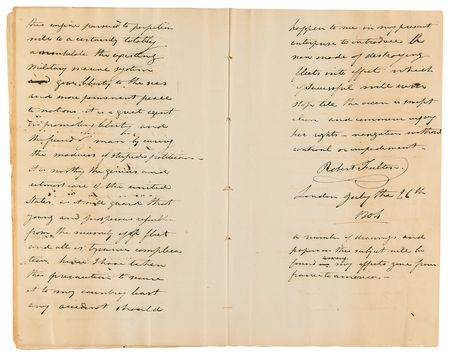 this engine pursued to perfection
will to a certainty totally
annihilate the existing
military marine system
give liberty to the seas
and more permanent peace
to nations it is a great agent
for promoting liberty and
the friend of man by curing
the madness of stupid politicians
It is worthy the genius and
utmost care of the united
States, as it will guard that
young and prosperous republic
from the necessity of a fleet
and all its tyranic complica
tion, hence I have taken
this precaution to secure
it to my country least
any accident should
happen to me in my present
enterprise to introduce the
new mode of destroying
fleets into effect which
if successful will never
stop till the ocean is swept
clean and commerce enjoy
her rights – navigation without
control or impediment –
Robert Fulton
London July the 26th
a number of drawings and
papers on this subject will be
found among my effects gone from
france to america –